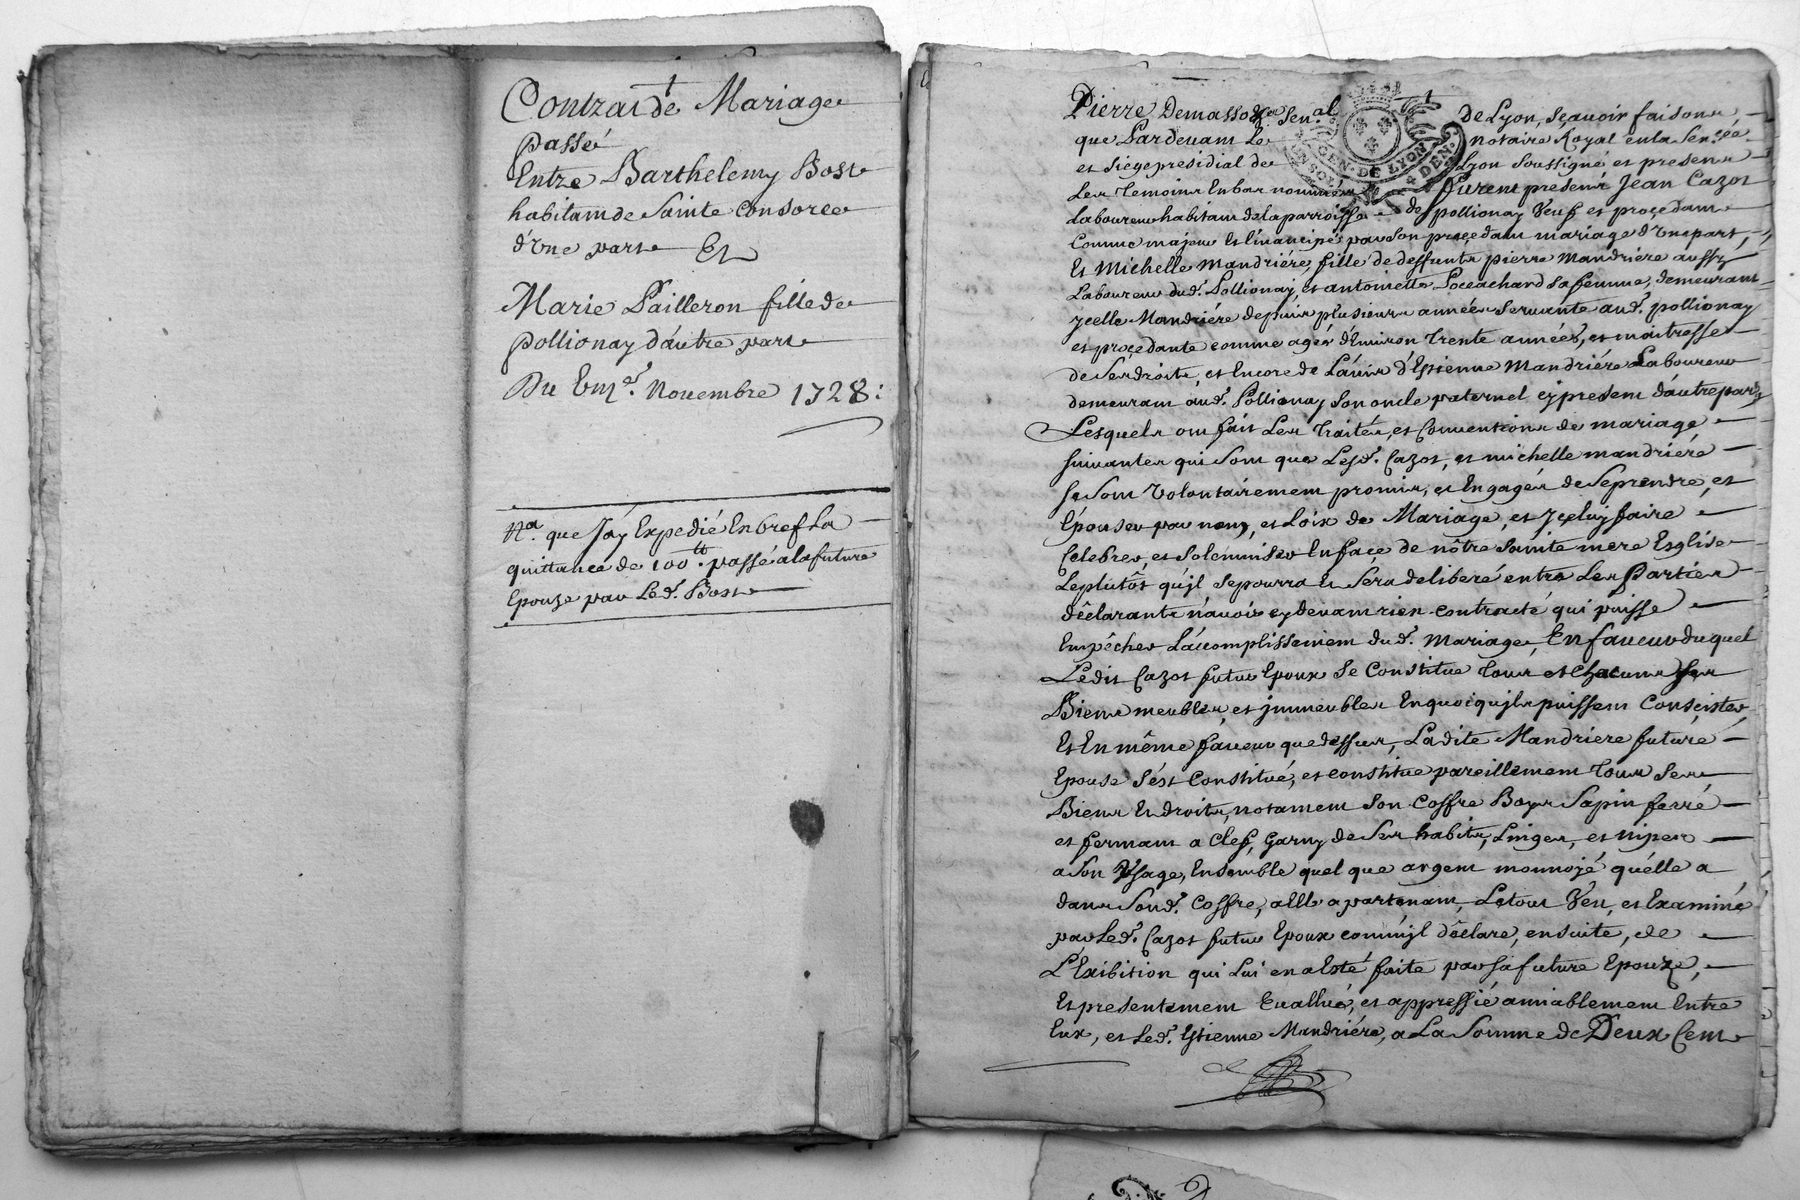 Contrat de Mariage
passé
Entre Barthelemy Bost
habitant de Sainte Consorce
d'Une part Et
Marie Pailleron fille de
pollionay d'autre part
Du Novembre 1728:
Na. que J'ay Expedié En bref La
quittance de 100tt. passé a la future
Epouze par Led. Bost
Pierre Demasso Senal de Lyon, sçavoir faisons
que Pardevant Le notaire Royal en la Sencée
et siege presidial de Lyon soussigné et presens
Les Temoins En bas nommés furent presens Jean Cazot
Laboureur habitant de la parroisse de pollionay Veuf et procedant
comme majeur et Emancipé par son precedant mariage d'Une part,
Et Michelle Mandriére, fille de deffunts pierre Mandriere aussy
Laboureur dud. Pollionay, et antoinette sa femme, demeurant
jcelle Mandriére depuis plusieurs années servante aud. pollionay
et procedante comme agée d'Environ Trente années, et maitresse
de Ses droits, et Encore de L'avis d'Estienne Mandriére Laboureur
demeurant aud. Pollionay son oncle paternel cy present d'autre part,
Lesquels ont fait Les Traités, et Conventions de mariage
suivantes qui sont que Lesd. Cazot, et michelle mandriére
se sont Volontairement promis, et Engagés de Se prendre, et
Epouser par nom, et Loix de Mariage, et jceluy faire
Celebrer, et solemniser En face de nôtre sainte mere Esglise
Le plutôt qu'jl se pourra et sera deliberé entre Les Parties
dêclarants n'avoir cy devant rien contracté qui puisse
Empêcher L'accomplissement dud. Mariage, En faveur du quel
Ledit Cazot futur Epoux se Constitue tous et Chacuns Ses
Biens meubles, et jmmeubles En quoi qu'jls puissent Consister,
Et En même faveur que dessus, Ladite Mandriere future
Epouse s'est Constitué, et constitue pareillement tous Ses
Biens Et droits, notament son Coffre Boys Sapin ferré
et fermant a Clef, Garny de Ses habits, Linges, et nipes
a Son Vsage, Ensemble quel que argent monnoyé qu'elle a
dans Sond. Coffre, a Elle apartenant, Le tout Veu, et Examiné
par Led. Cazot futur Epoux comm'jl dêclare, en suite, de
L'Exibition qui Lui en a Esté faite par sa future Epouze,
Et presentement Evallué, et appressié amiablement Entre
Eux, et Led. Estienne Mandriére, a La Somme de Deux Cent
GEN. DE LYON